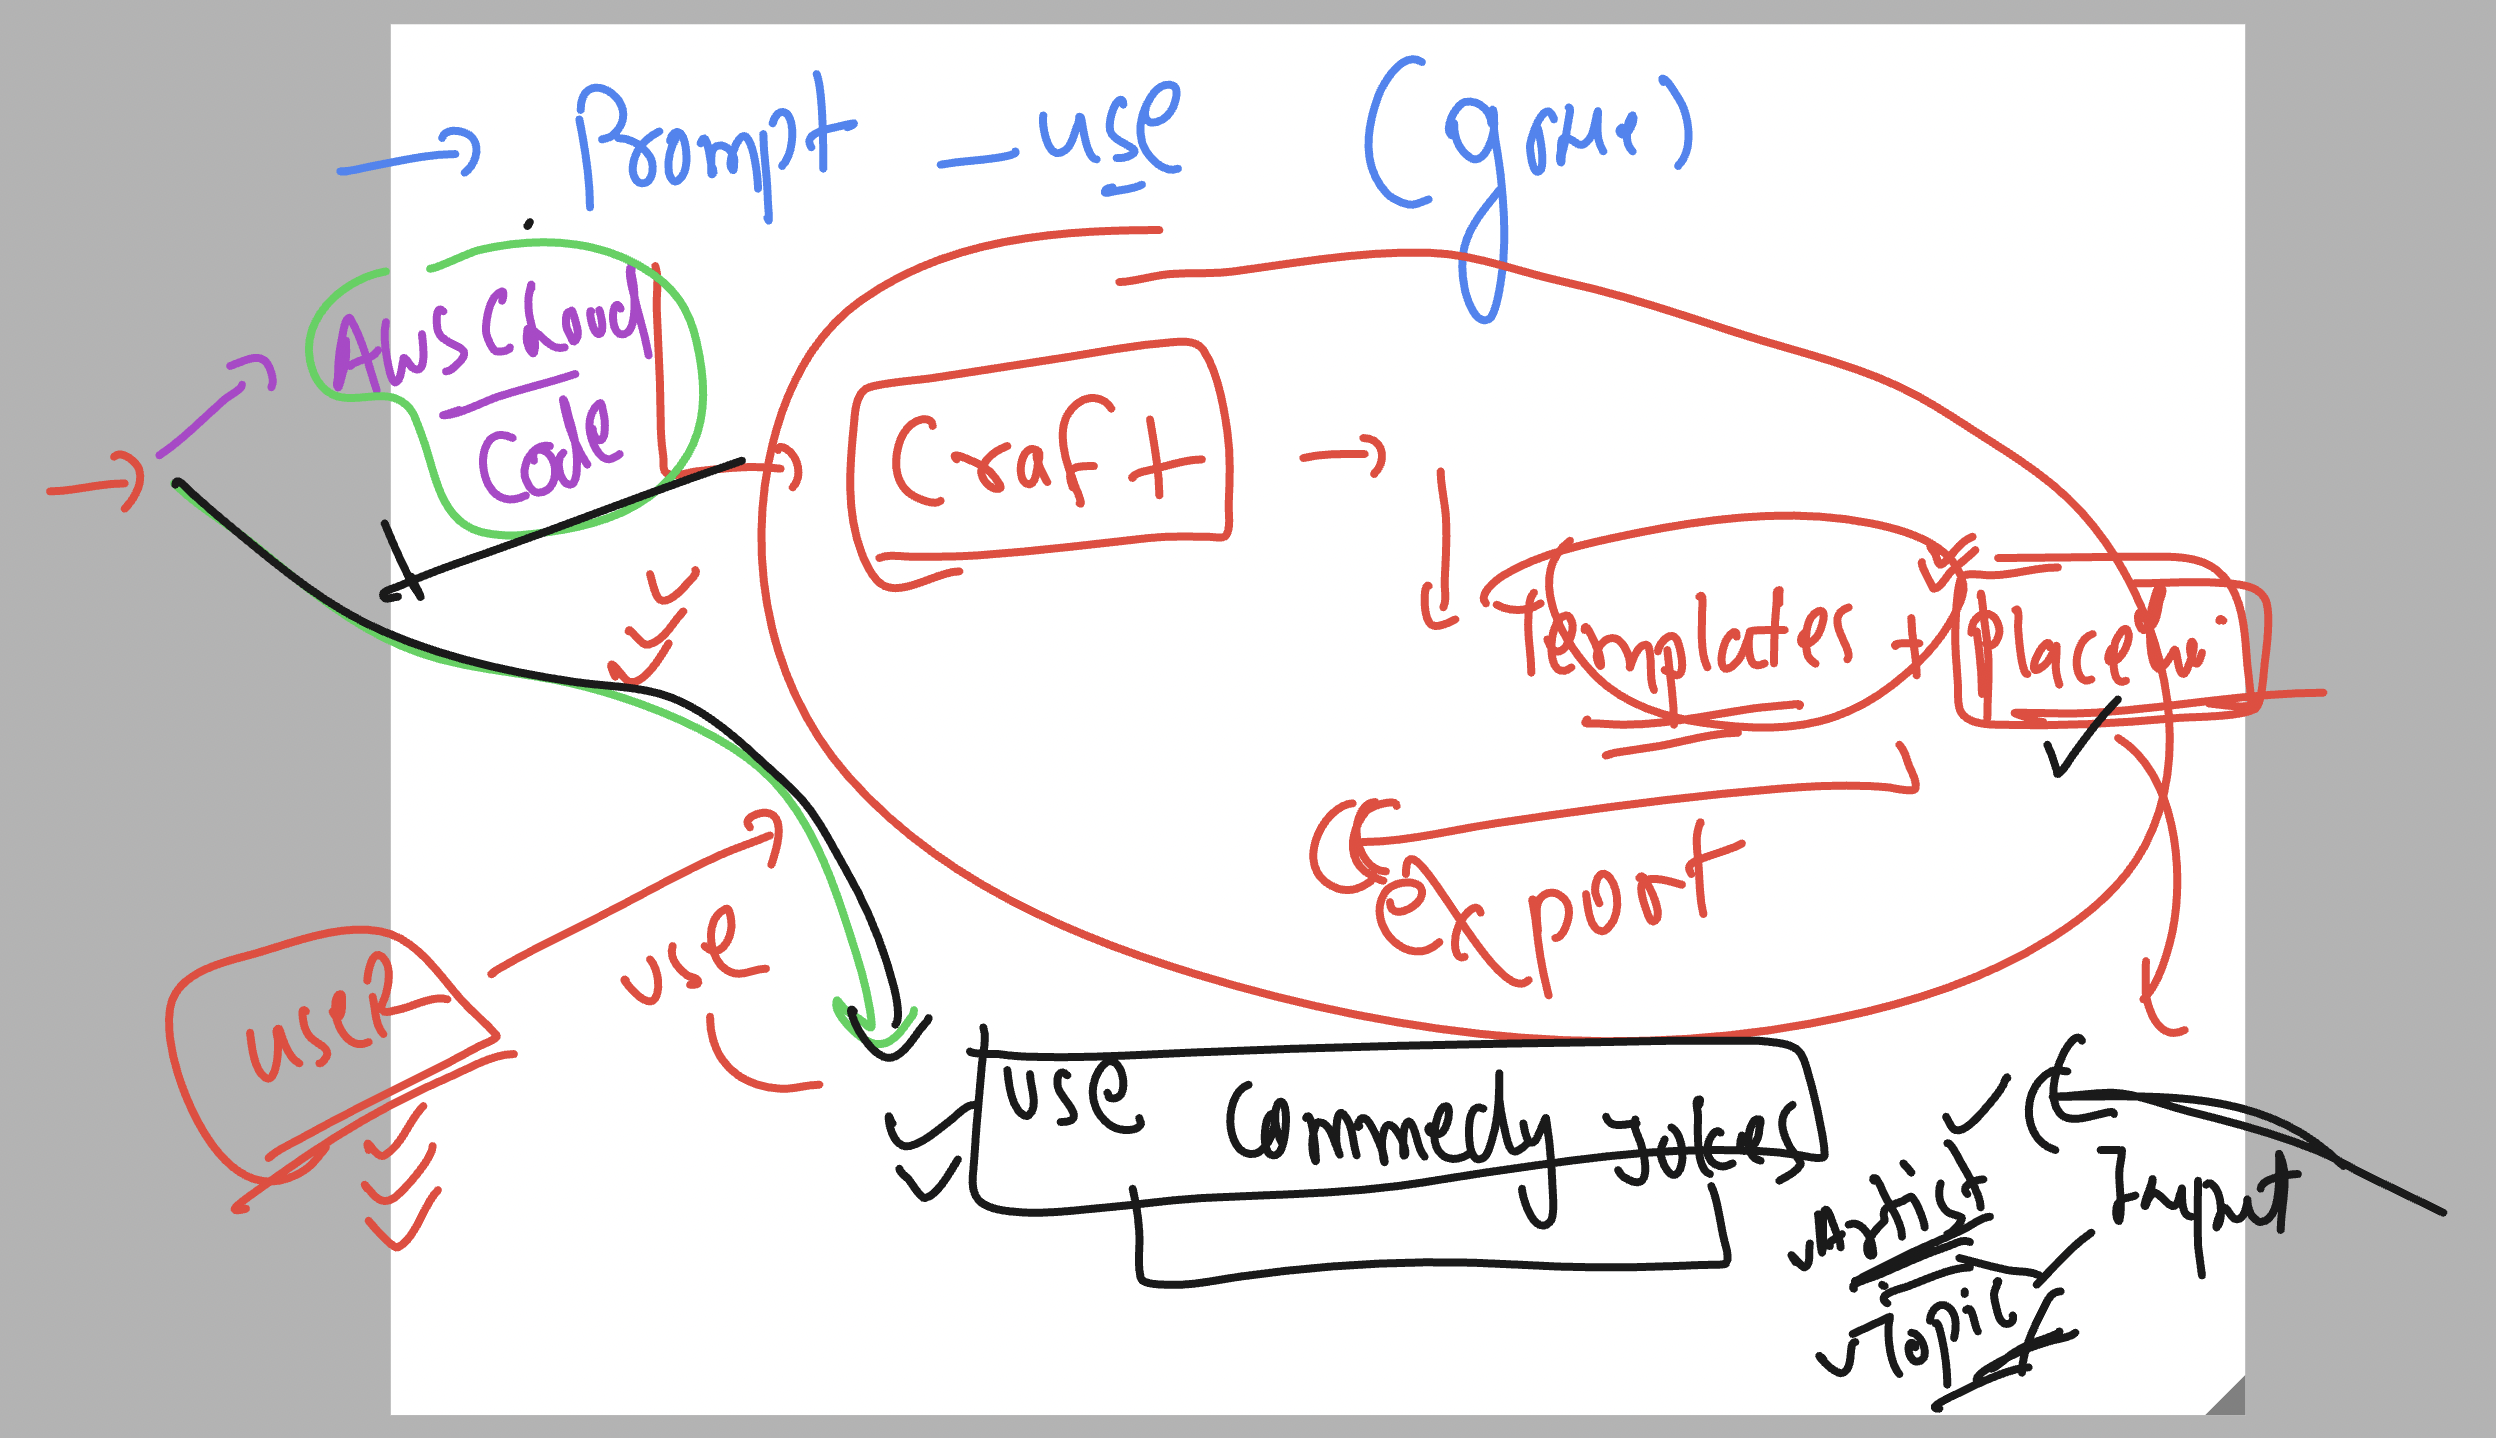 → Prompt - use (given)
AWS Cloud
Code
Craft →
templates + Placeh.
export
use
user
use Commedy Jokes
Input
Artist
Topic